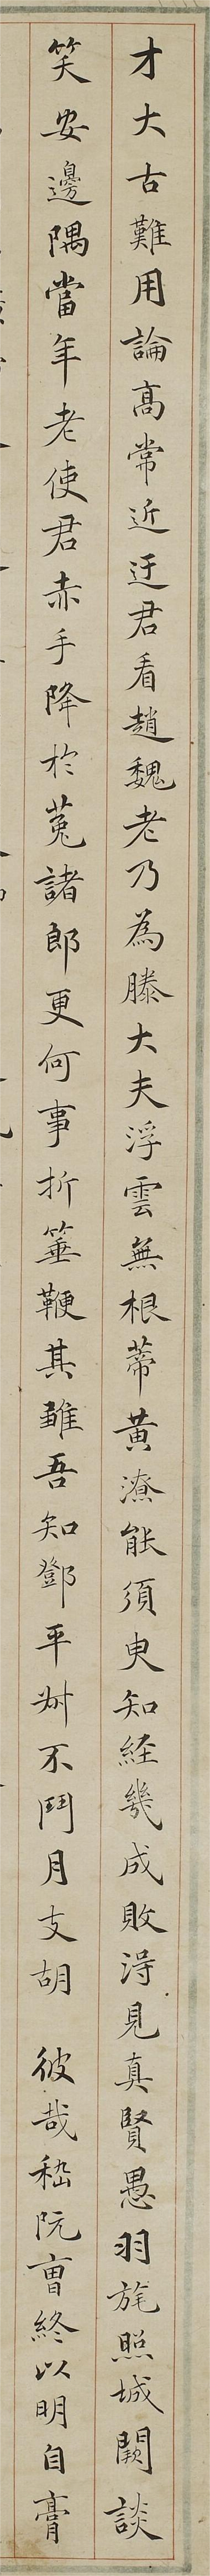 才大古難用論高常近迂君看趙魏老乃為滕大夫浮雲無根蒂黃潦能須臾知經幾成敗得見真賢愚羽旄照城闕談
笑安邊隅當年老使君赤手降於菟諸郎更何事折箠鞭其雛吾知鄧平叔不鬥月支胡 彼哉嵇阮曹終以明自膏